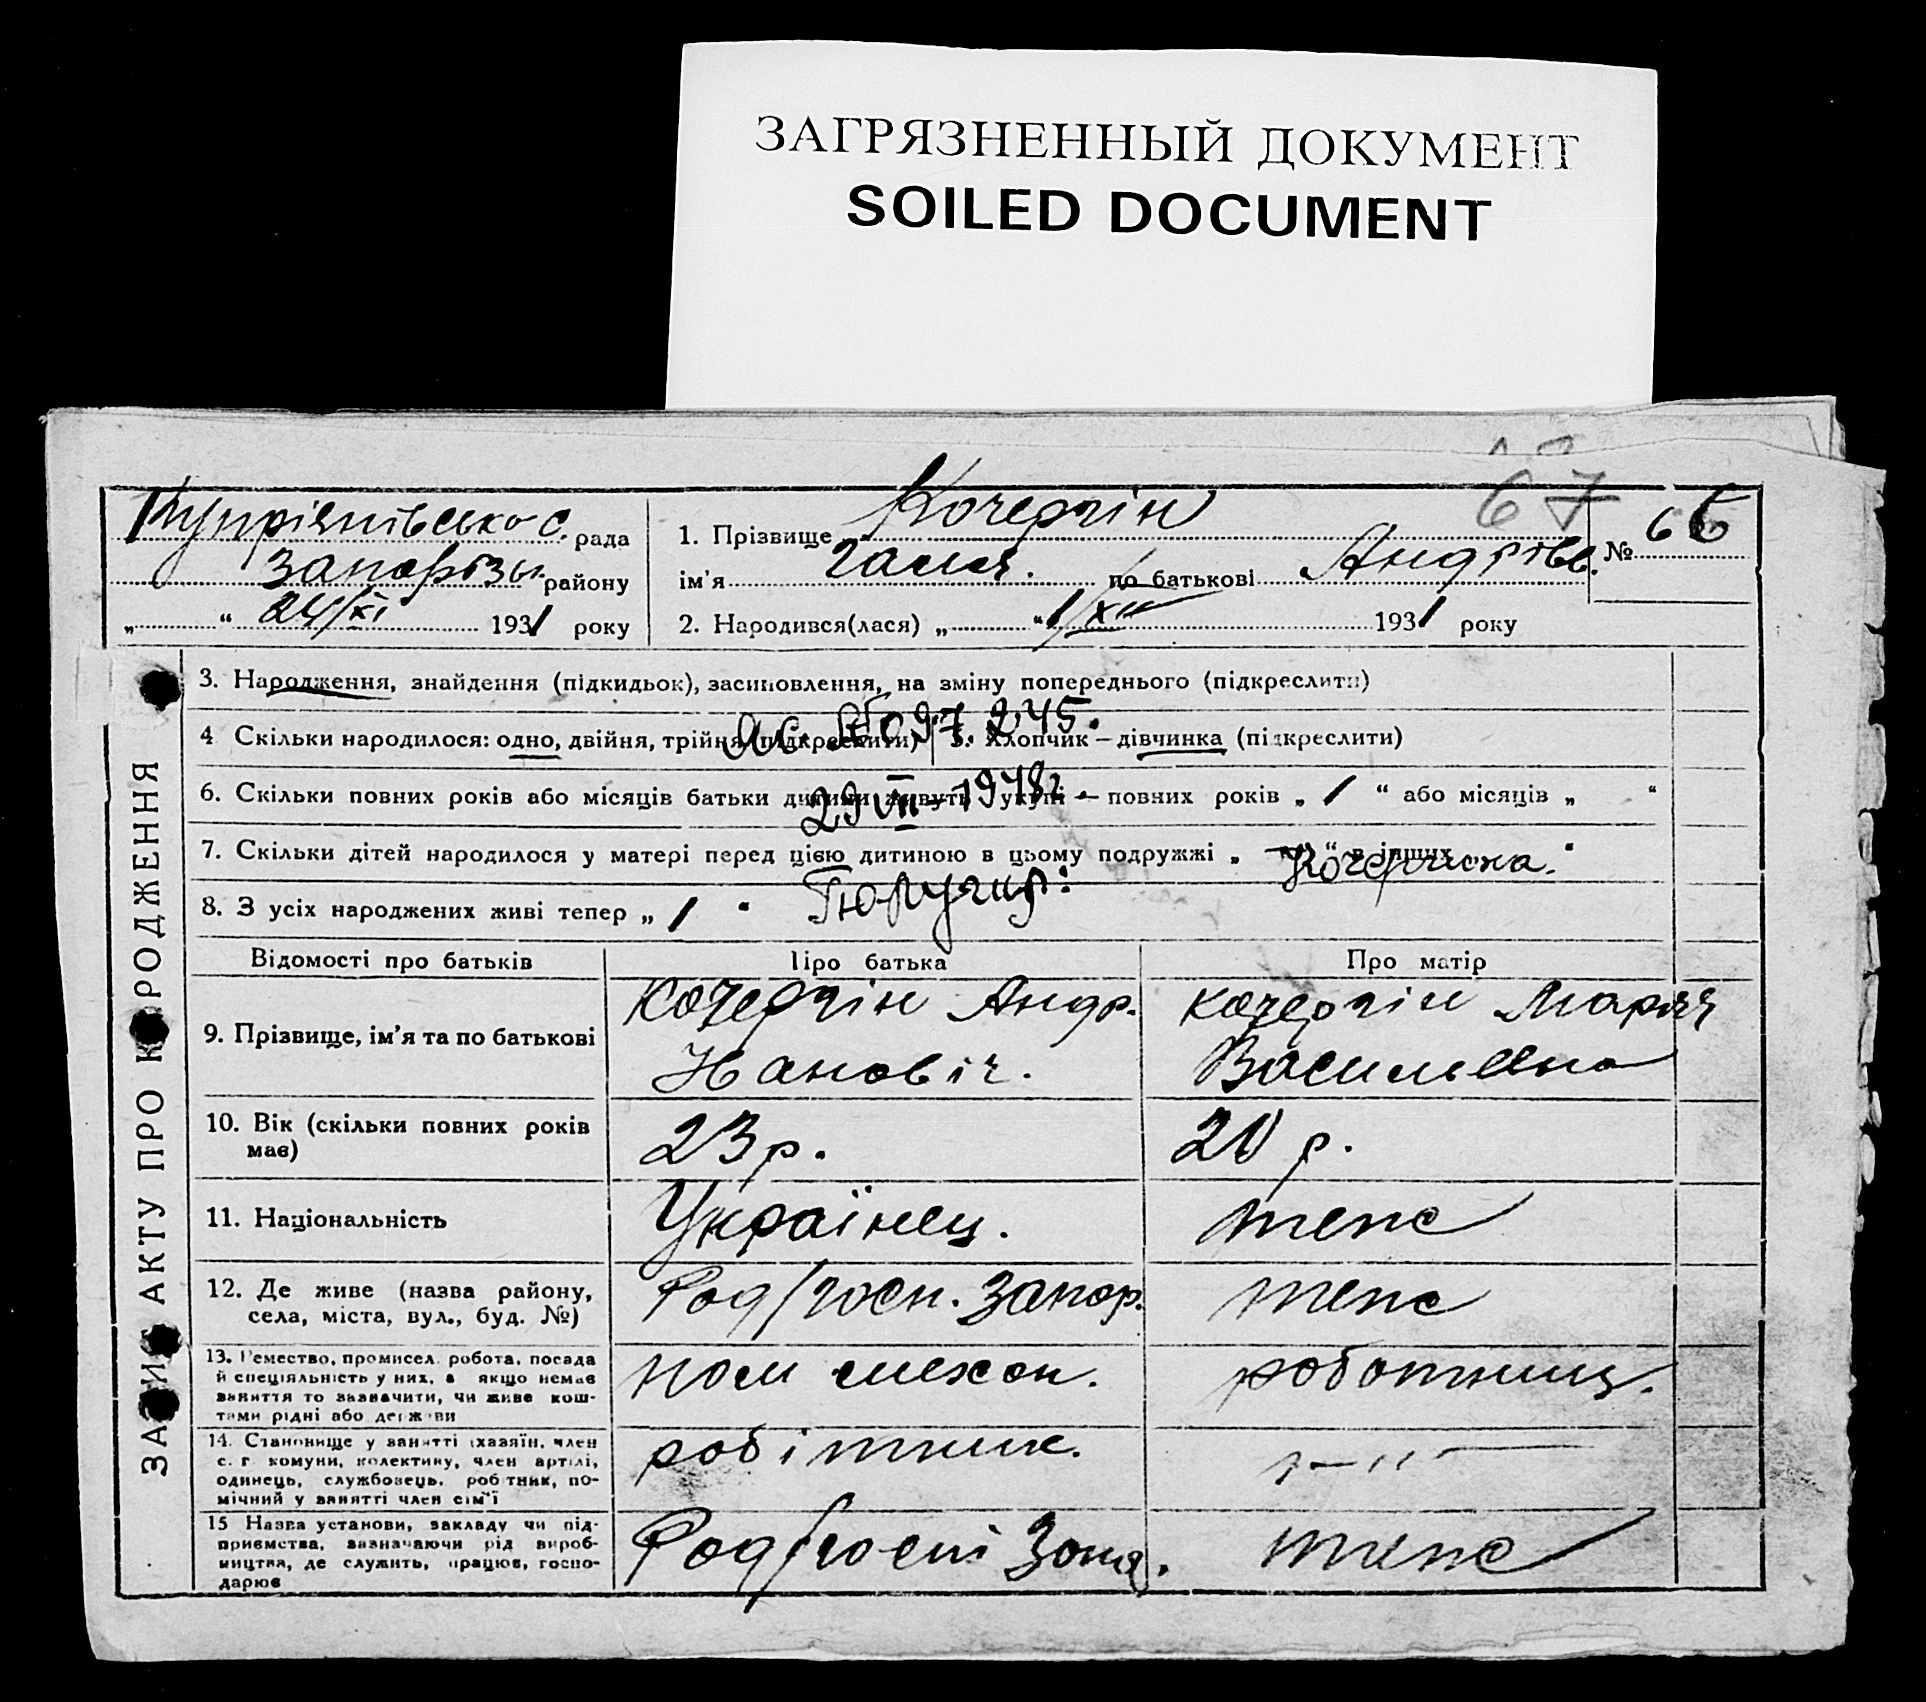 ЗАГРЯЗНЕННЫЙ ДОКУМЕНТ
SOILED DOCUMENT
67
Купріянівсько с. рада
Запорізьк. району
„ “ 24/XI 1931 року
1. Прізвище Кочергін
ім’я Галя. по батькові Андріев.
№ 66
2. Народився(лася) „ “ 1/XII 1931 року
ЗАПИС АКТУ ПРО НАРОДЖЕННЯ
3. Народження, знайдення (підкидьок), засиновлення, на зміну попереднього (підкреслити)
4 Скільки народилося: одно, двійня, трійня (підкреслити) 5. Хлопчик – дівчинка (підкреслити)
097.245.
6. Скільки повних років або місяців батьки дитини живуть укупі – повних років „ 1 “ або місяців „ “
29 VII – 1948г.
7. Скільки дітей народилося у матері перед цією дитиною в цьому подружжі „ – “ в інших
Кочергина.
8. З усіх народжених живі тепер „ 1 “
Відомості про батьків Про батька Про матір
9. Прізвище, ім’я та по батькові
Кочергін Андр.
Кочергін Марія
10. Вік (скільки повних років має)
23 р.
20 р.
11. Національність
Українец.
теж
12. Де живе (назва району,
села, міста, вул., буд. №)
Рад/госп. Запор.
теж
13. Ремество, промисел, робота, посада
й спеціяльність у них, а якщо немає
заняття то зазначити, чи живе кош-
тами рідні або держави
пом механ.
работниц.
14. Становище у занятті (хазяїн, член
с. г. комуни, колективу, член артілі,
одинець, службовець, робітник, по-
мічний у занятті член сім’ї
робітник.
– ,, –
15 Назва установи, закладу чи під-
приємства, зазначаючи рід вироб-
ництва, де служить, працює, госпо-
дарює
Рад/госпі Запор.
теж